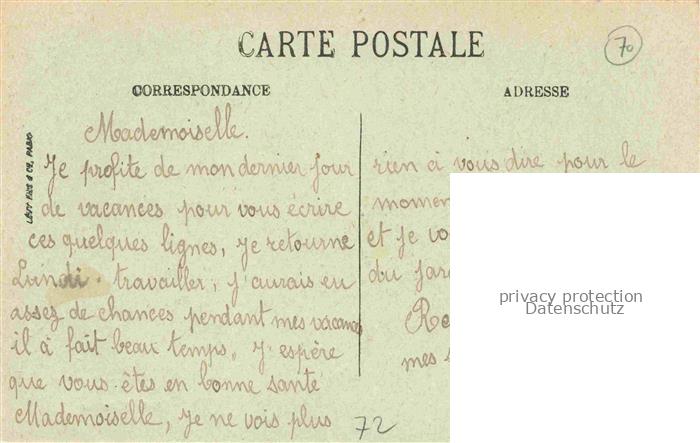 CARTE POSTALE
70
CORRESPONDANCE
ADRESSE
LÉVY FILS & Cie, PARIS
Mademoiselle.
Je profite de mon dernier jour
de vacances pour vous écrire
ces quelques lignes, je retourne
Lundi travailler, j'aurais eu
assez de chances pendant mes vacances
il à fait beau temps, J'espère
que vous êtes en bonne santé
Mademoiselle, je ne vois plus
rien à vous dire pour le
momen
et je vo
du
Re
mes
72
privacy protection
Datenschutz